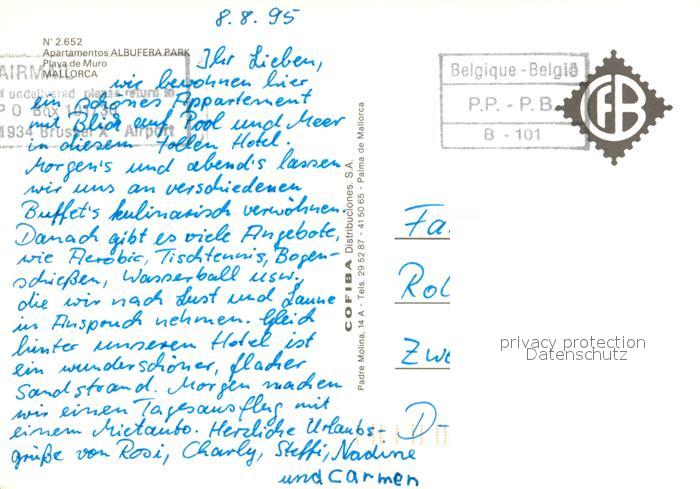 8.8.95
N° 2.652
Apartamentos ALBUFERA PARK
Playa de Muro
MALLORCA
AIRM
undelivered please return to
P O Box
1934 Brussel X - Airport
Ihr Lieben,
wir bewohnen hier
ein schönes Appartement
mit Blick auf Pool und Meer
in diesem tollen Hotel.
Morgen's und abend's lassen
wir uns an verschiedenen
Buffet's kulinarisch verwöhnen.
Danach gibt es viele Angebote,
wie Aerobic, Tischtennis, Bogen-
schießen, Wasserball usw.,
die wir nach Lust und Laune
in Anspruch nehmen. Gleich
hinter unserem Hotel ist
ein wunderschöner, flacher
Sandstrand. Morgen machen
wir einen Tagesausflug mit
einem Mietauto. Herzliche Urlaubs-
grüße von Rosi, Charly, Steffi, Nadine
und Carmen
COFIBA Distribuciones, S.A.
Padre Molina, 14 A - Tels. 29 52 87 - 41 50 65 - Palma de Mallorca
Belgique - België
P.P. - P.B.
B - 101
CFB
Fa
Rol
Zwe
D-
privacy protection
Datenschutz